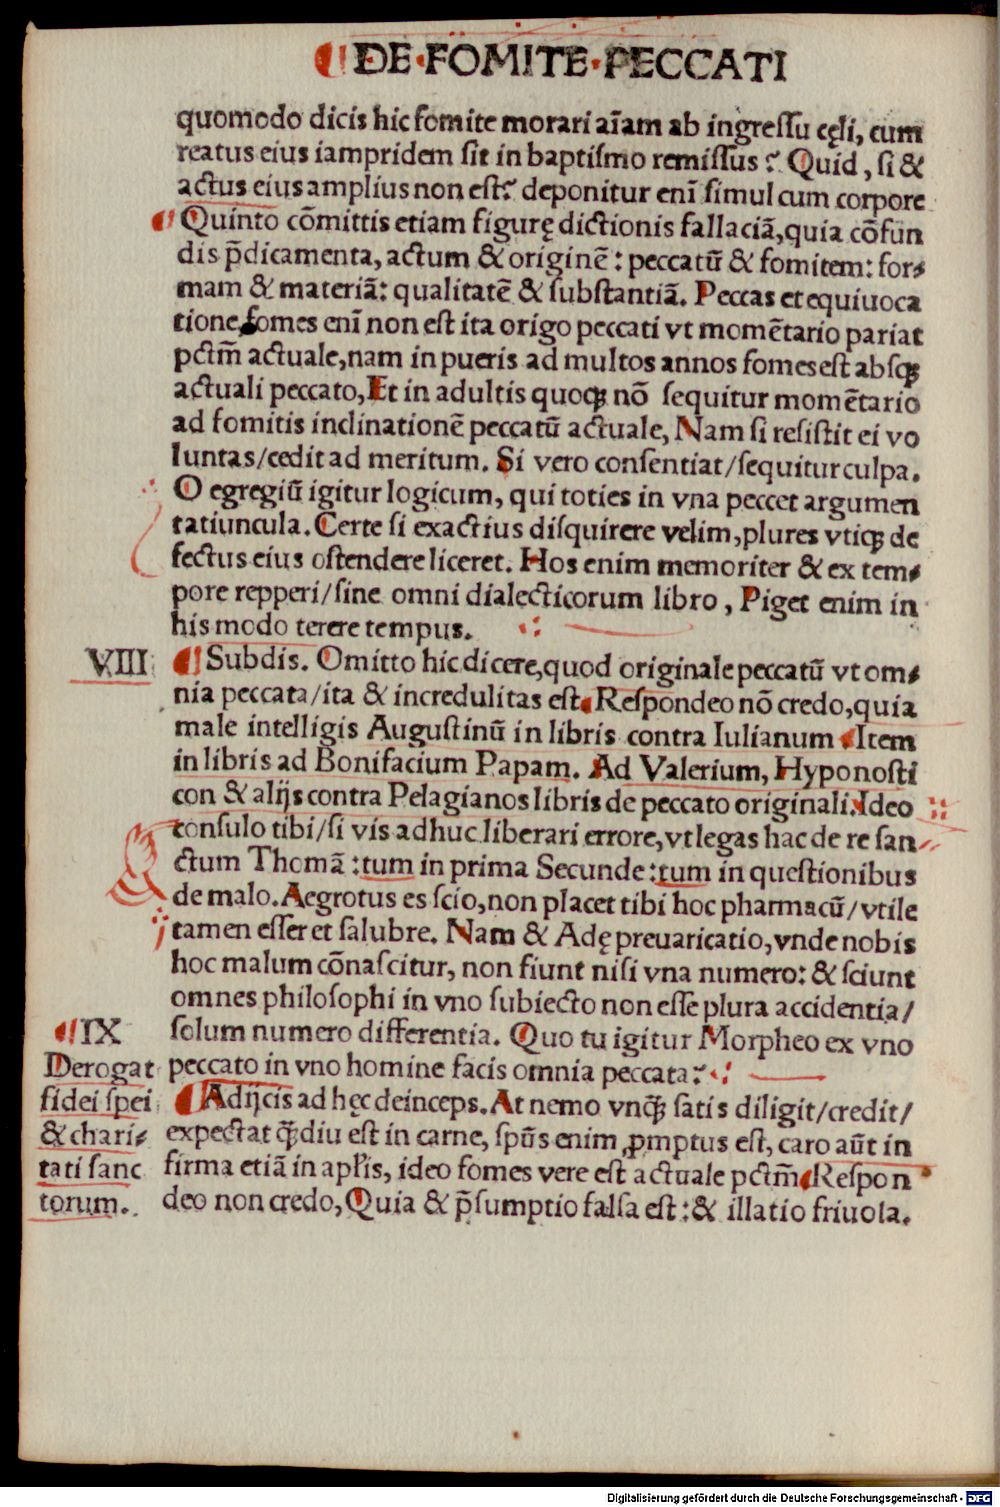 ¶ DE·FOMITE·PECCATI
quomodo dicis hic fomite morari aīam ab ingreſſu cęli, cum
reatus eius iampridem ſit in baptiſmo remiſſus? Quid, ſi &
actus eius amplius non eſt? deponitur enī ſimul cum corpore
¶ Quinto cōmittis etiam figurę dictionis fallaciā, quia cōfun
dis p̄dicamenta, actum & originē: peccatū & fomitem: for⸗
mam & materiā: qualitatē & ſubſtantiā. Peccas et equiuoca
tione, fomes enī non eſt ita origo peccati vt momētario pariat
pctm̄ actuale, nam in pueris ad multos annos fomes eſt abſqꝫ
actuali peccato, Et in adultis quoqꝫ nō ſequitur momētario
ad fomitis inclinationē peccatū actuale, Nam ſi reſiſtit ei vo
luntas/cedit ad meritum. Si vero conſentiat/ſequitur culpa.
O egregiū igitur logicum, qui toties in vna peccet argumen
tatiuncula. Certe ſi exactius diſquirere velim, plures vtiqꝫ de
fectus eius oſtendere liceret. Hos enim memoriter & ex tem⸗
pore repperi/ſine omni dialecticorum libro, Piget enim in
his modo terere tempus.
VIII
¶ Subdis. Omitto hic dicere, quod originale peccatū vt om⸗
nia peccata/ita & incredulitas eſt. Reſpondeo nō credo, quia
male intelligis Auguſtinū in libris contra Iulianum Item
in libris ad Bonifacium Papam. Ad Valerium, Hyponoſti
con & alijs contra Pelagianos libris de peccato originali. Ideo
conſulo tibi/ſi vis adhuc liberari errore, vt legas hac de re ſan⸗
ctum Thomā: tum in prima Secunde: tum in queſtionibus
de malo. Aegrotus es ſcio, non placet tibi hoc pharmacū/vtile
tamen eſſet et ſalubre. Nam & Adę preuaricatio, vnde nobis
hoc malum cōnaſcitur, non fiunt niſi vna numero: & ſciunt
omnes philoſophi in vno ſubiecto non eſſe plura accidentia/
ſolum numero differentia. Quo tu igitur Morpheo ex vno
peccato in vno homine facis omnia peccata?
¶ IX
Derogat
fidei ſpei
& chari⸗
tati ſanc
torum.
¶ Adijcis ad hęc deinceps. At nemo vnqꝫ̄ ſatis diligit/credit/
expectat qꝫ̄diu eſt in carne, ſpūs enim ꝓmptus eſt, caro aūt in
firma etiā in apłis, ideo fomes vere eſt actuale pctm̄ Reſpon
deo non credo, Quia & p̄ſumptio falſa eſt: & illatio friuola.
Digitalisierung gefördert durch die Deutsche Forschungsgemeinschaft - DFG